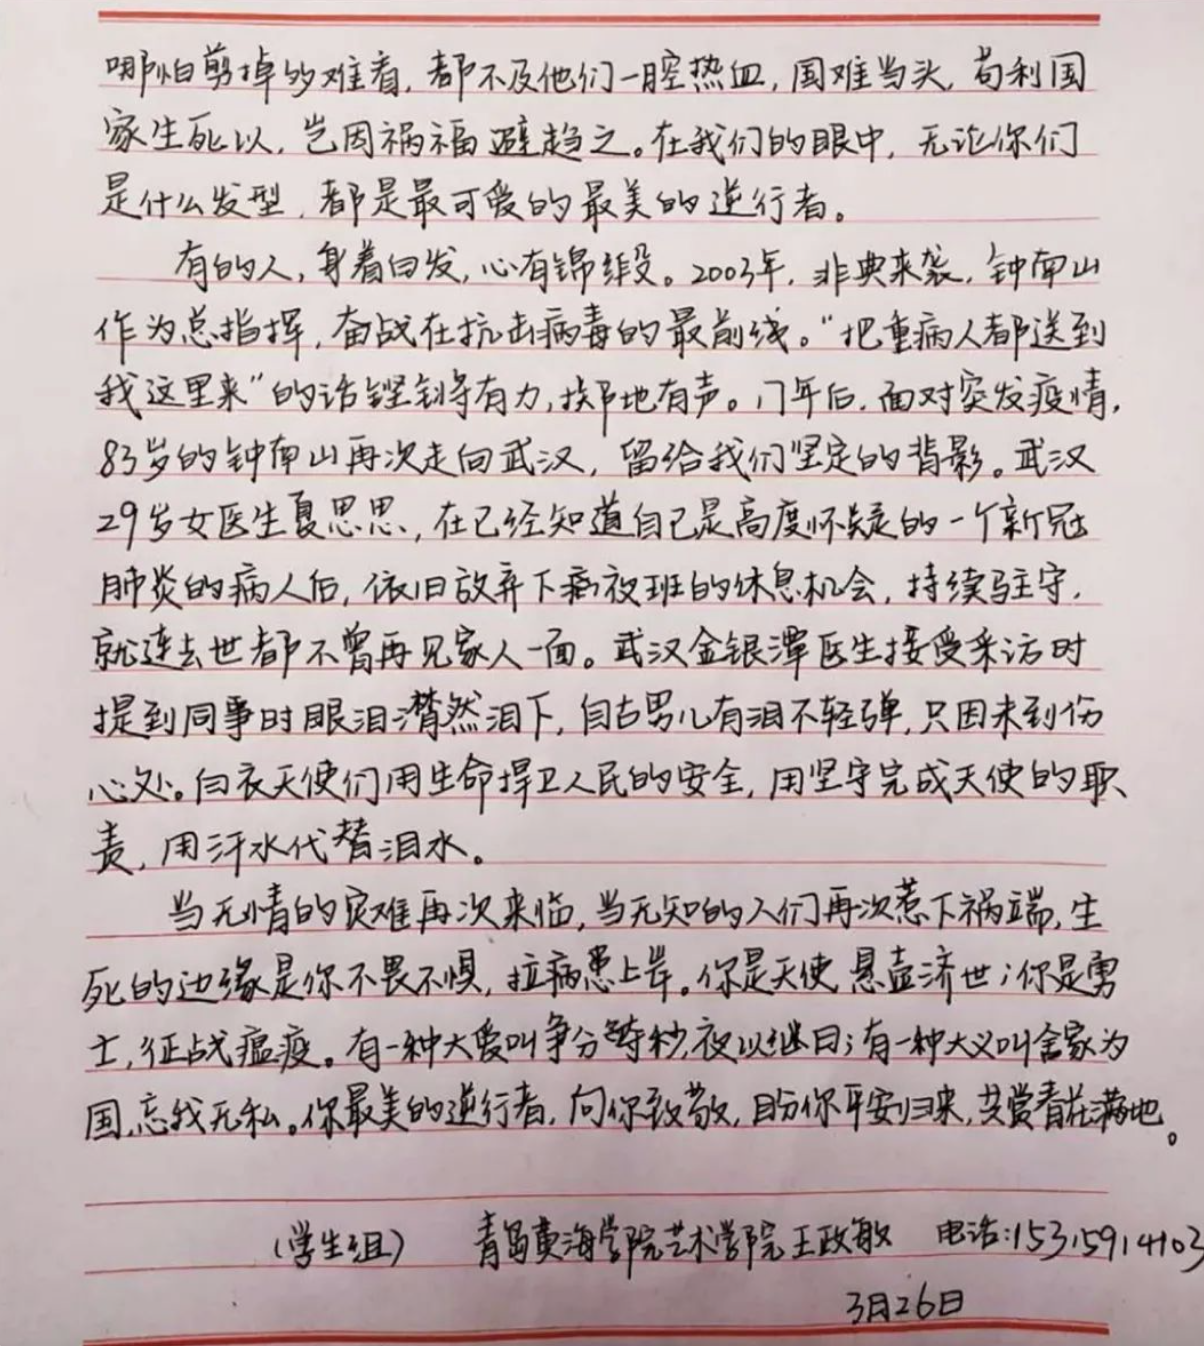 哪怕剪掉的难看，都不及他们一腔热血，国难当头，苟利国
家生死以，岂因祸福避趋之。在我们的眼中，无论你们
是什么发型，都是最可爱的最美的逆行者。
有的人，身着白发，心有锦缎。2003年，非典来袭，钟南山
作为总指挥，奋战在抗击病毒的最前线。“把重病人都送到
我这里来”的话铿锵有力，掷地有声。17年后，面对突发疫情，
83岁的钟南山再次走向武汉，留给我们坚定的背影。武汉
29岁女医生夏思思，在已经知道自己是高度怀疑的一个新冠
肺炎的病人后，依旧放弃下夜班的休息机会，持续驻守，
就连去世都不曾再见家人一面。武汉金银潭医生接受采访时
提到同事时眼泪潸然泪下，自古男儿有泪不轻弹，只因未到伤
心处。白衣天使们用生命捍卫人民的安全，用坚守完成天使的职
责，用汗水代替泪水。
当无情的灾难再次来临，当无知的人们再次惹下祸端，生
死的边缘是你不畏不惧，拉病患上岸。你是天使 悬壶济世；你是勇
士，征战瘟疫。有一种大爱叫争分夺秒，夜以继日；有一种大义叫舍家为
国，忘我无私。你最美的逆行者，向你致敬，盼你平安归来，共赏春花满地。
（学生组） 青岛黄海学院艺术学院王政敏 电话：15315914103
3月26日